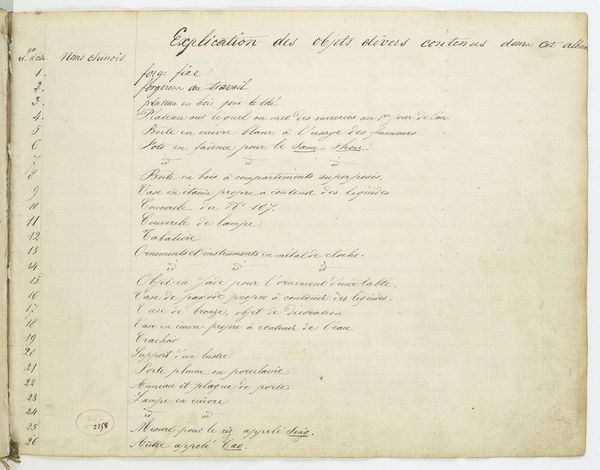 Explication des objets divers contenus dans cet album
Noms chinois
1. forge fixe
2. forgeron au travail
3. plateau en bois pour le thé
4. Plateau sur lequel on met des sucreries au 1er jour de l'an
5 Boite en cuivre blanc à l'usage des fumeurs
6 Pots en faïence pour le Sam-shou.
7 id id id
8 Boite en bois à compartiments superposés.
9 Vase en étain propre à contenir des liquides
10 Couvercle du No 107.
11 Couvercle de lampe
12 Tabatière
13 Ornements et instruments en métal de cloche.
14 id id id
15 Objet en jade pour l'ornement d'une table.
16 Vase de pagode propre à contenir des liquides.
17 Vase de bronze, objet de décoration
18 Vase en cuivre propre à contenir de l'eau
19 Crachoir
20 Support d'un lustre
21 Porte plume en porcelaine
22 Anneau et plaque de porte
23 Lampe en cuivre
24 id id
25 Mesure pour le riz appelé Sing.
26 Autre appelé Tao.
2258